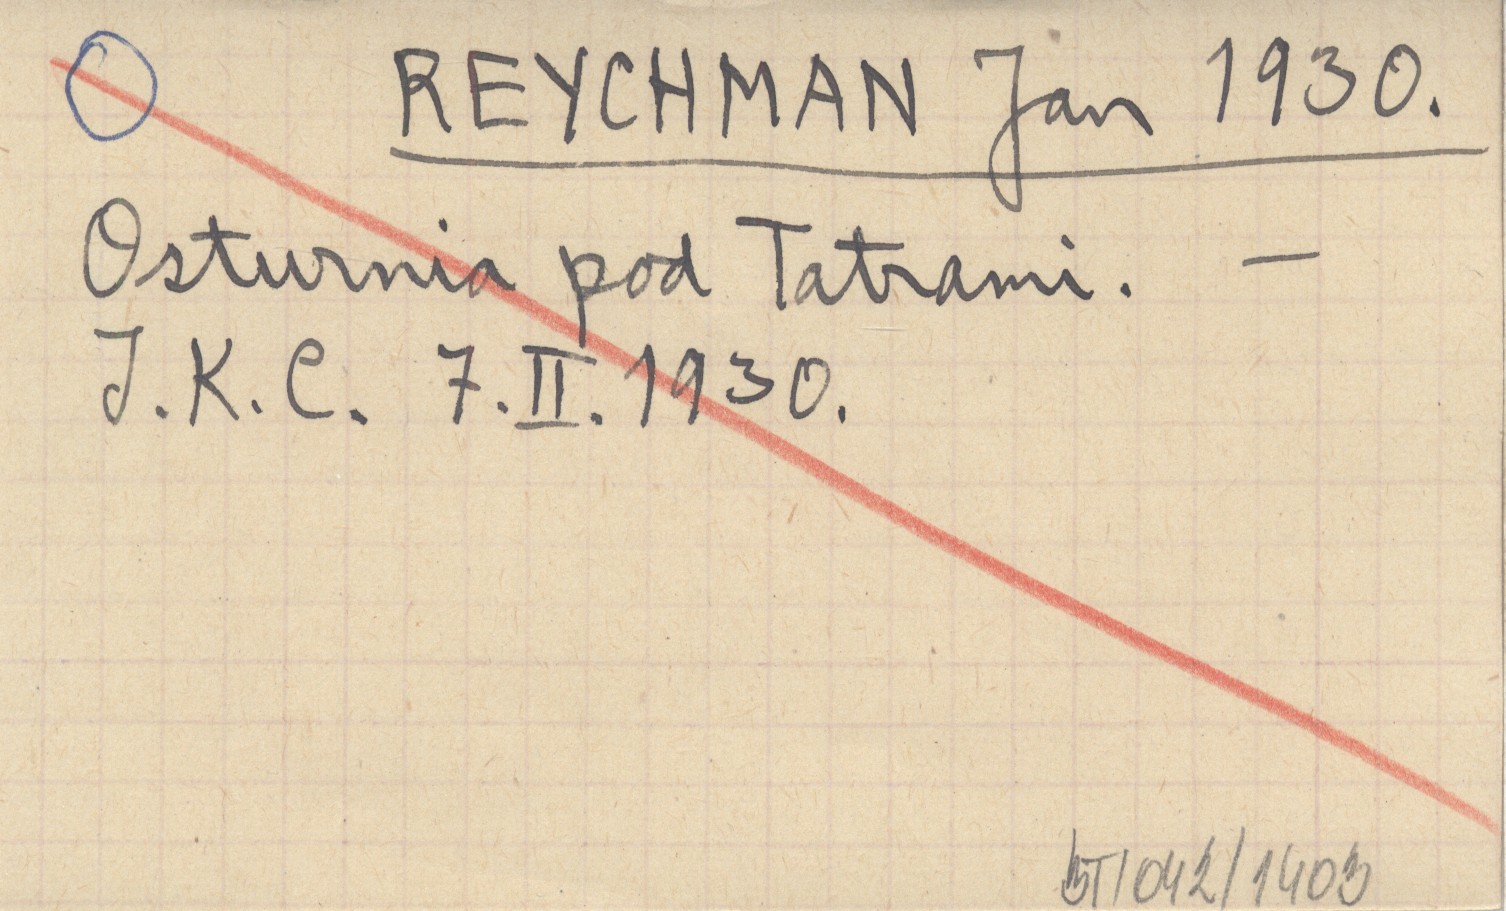 REYCHMAN Jan 1930.
Osturnia pod Tatrami. —
J.K.C. 7.II.1930.
BT/042/1403